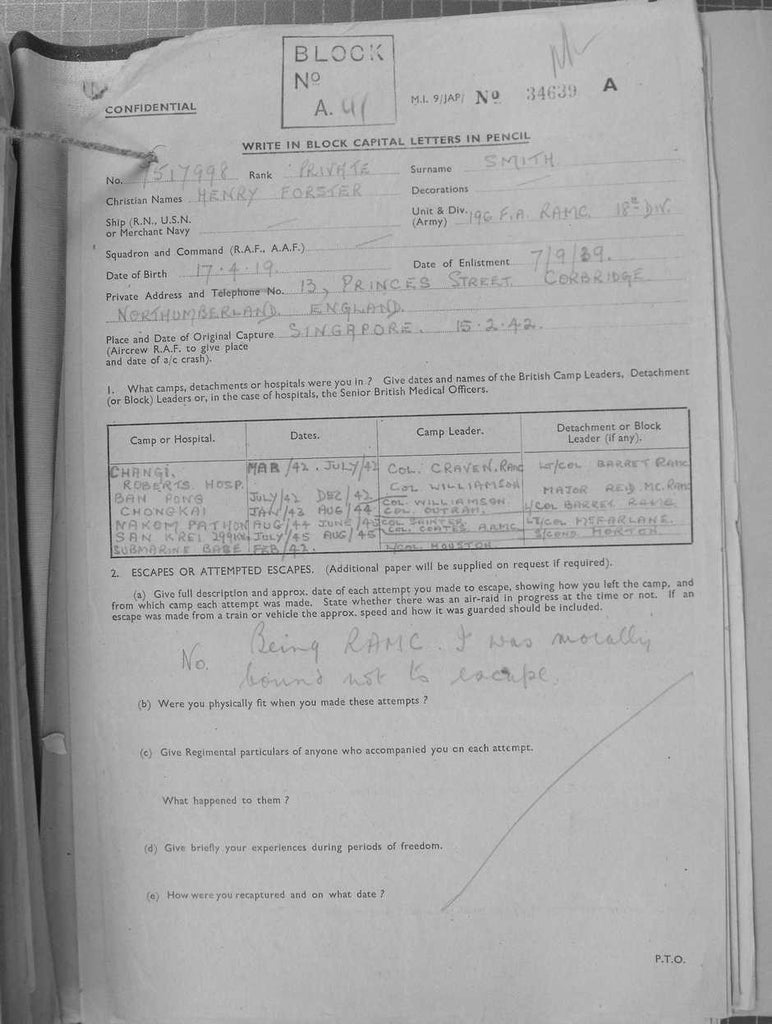 BLOCK
Nº
A. 41
CONFIDENTIAL
M.I. 9/JAP/ Nº 34639 A
WRITE IN BLOCK CAPITAL LETTERS IN PENCIL
No. 7517998 Rank PRIVATE Surname SMITH
Christian Names HENRY FORSTER Decorations
Ship (R.N., U.S.N. or Merchant Navy
Unit & Div. (Army) 196 F.A. RAMC. 18TH DIV.
Squadron and Command (R.A.F., A.A.F.)
Date of Birth 17.4.19. Date of Enlistment 7/9/39.
Private Address and Telephone No. 13, PRINCES STREET. CORBRIDGE
NORTHUMBERLAND. ENGLAND.
Place and Date of Original Capture SINGAPORE. 15.2.42.
(Aircrew R.A.F. to give place
and date of a/c crash).
1. What camps, detachments or hospitals were you in ? Give dates and names of the British Camp Leaders, Detachment
(or Block) Leaders or, in the case of hospitals, the Senior British Medical Officers.
Camp or Hospital. Dates. Camp Leader. Detachment or Block Leader (if any).
CHANGI. MAR/42. JULY/42 COL. CRAVEN. RAMC LT/COL BARRET RAMC
ROBERTS. HOSP. COL WILLIAMSON
BAN PONG JULY/42 DEC/42 COL. WILLIAMSON MAJOR REID MC. RAMC
CHONGKAI JAN/43 AUG/44 COL. OUTRAM. L/COL BARRET RAMC
NAKOM PATHON AUG/44 JUNE/45 COL SAINTER COL. COATES AAMC LT/COL MCFARLANE.
SAN KREI 299KM JULY/45 AUG/45 MORTON
SUBMARINE BASE FEB/42. L/COL HOUSTON
2. ESCAPES OR ATTEMPTED ESCAPES. (Additional paper will be supplied on request if required).
(a) Give full description and approx. date of each attempt you made to escape, showing how you left the camp, and
from which camp each attempt was made. State whether there was an air-raid in progress at the time or not. If an
escape was made from a train or vehicle the approx. speed and how it was guarded should be included.
No. Being RAMC. I was morally
bound not to escape.
(b) Were you physically fit when you made these attempts ?
(c) Give Regimental particulars of anyone who accompanied you on each attempt.
What happened to them ?
(d) Give briefly your experiences during periods of freedom.
(e) How were you recaptured and on what date ?
P.T.O.